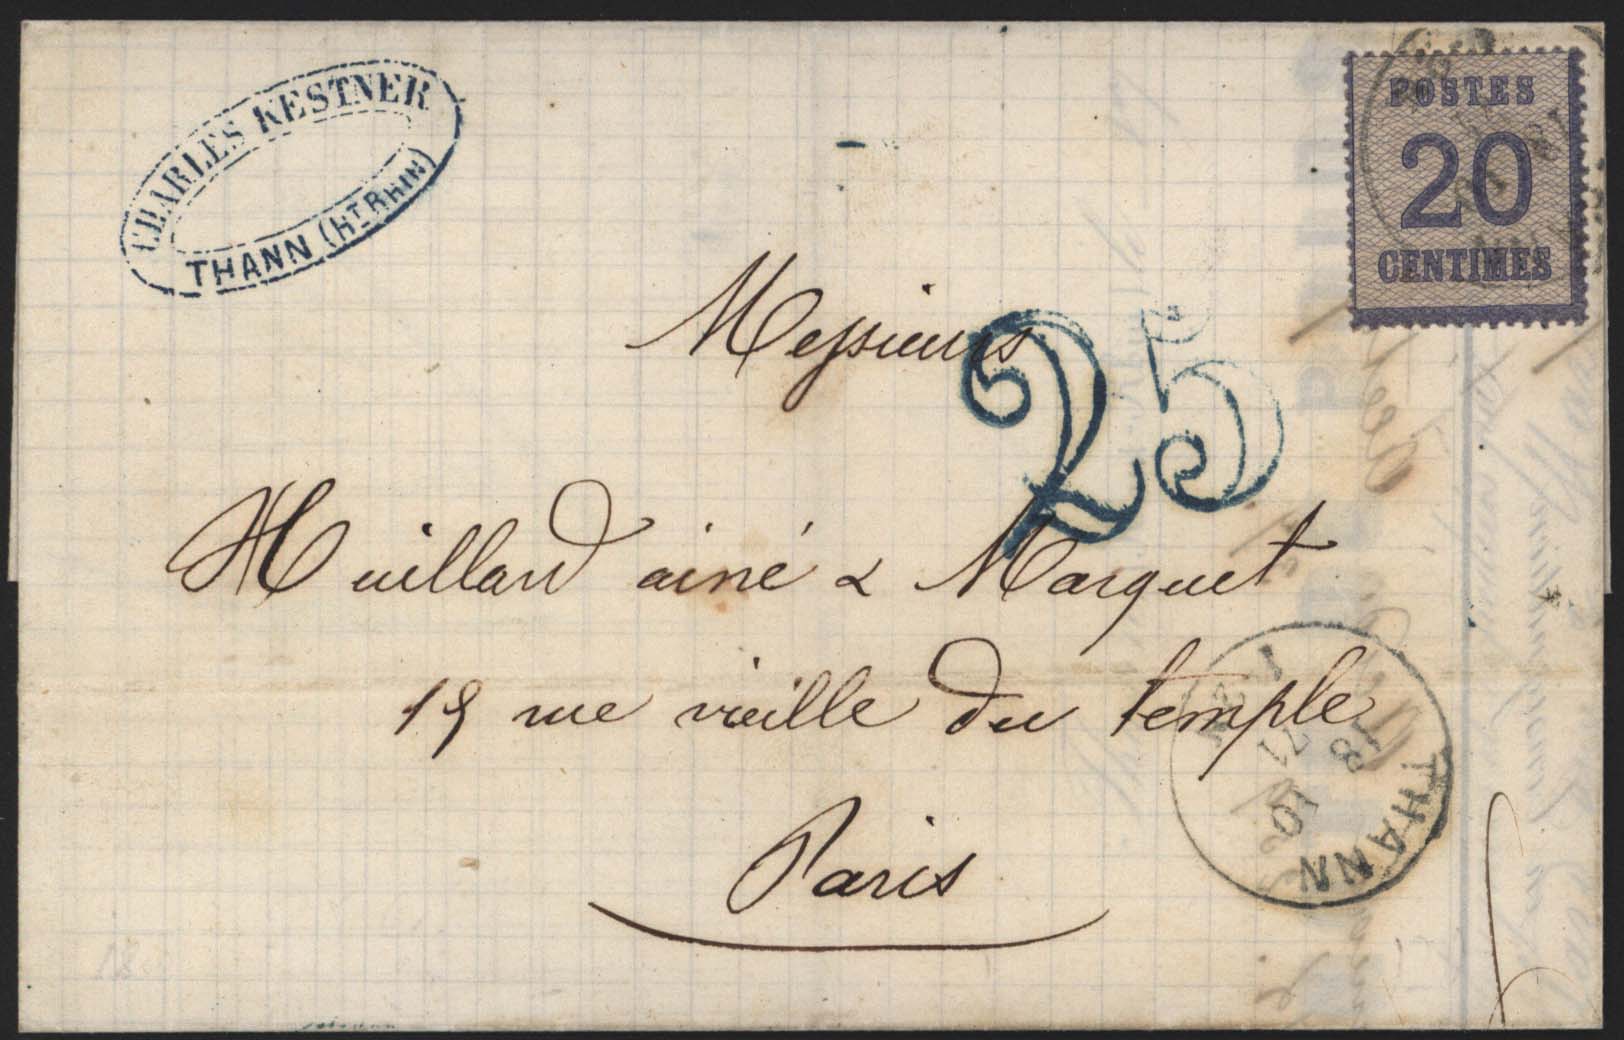 CHARLES KESTNER
THANN (HT RHIN)
POSTES
20
CENTIMES
Messieurs
25
Huillard ainé & Marquet
15 rue vieille du temple
Paris
THANN
18
10
71